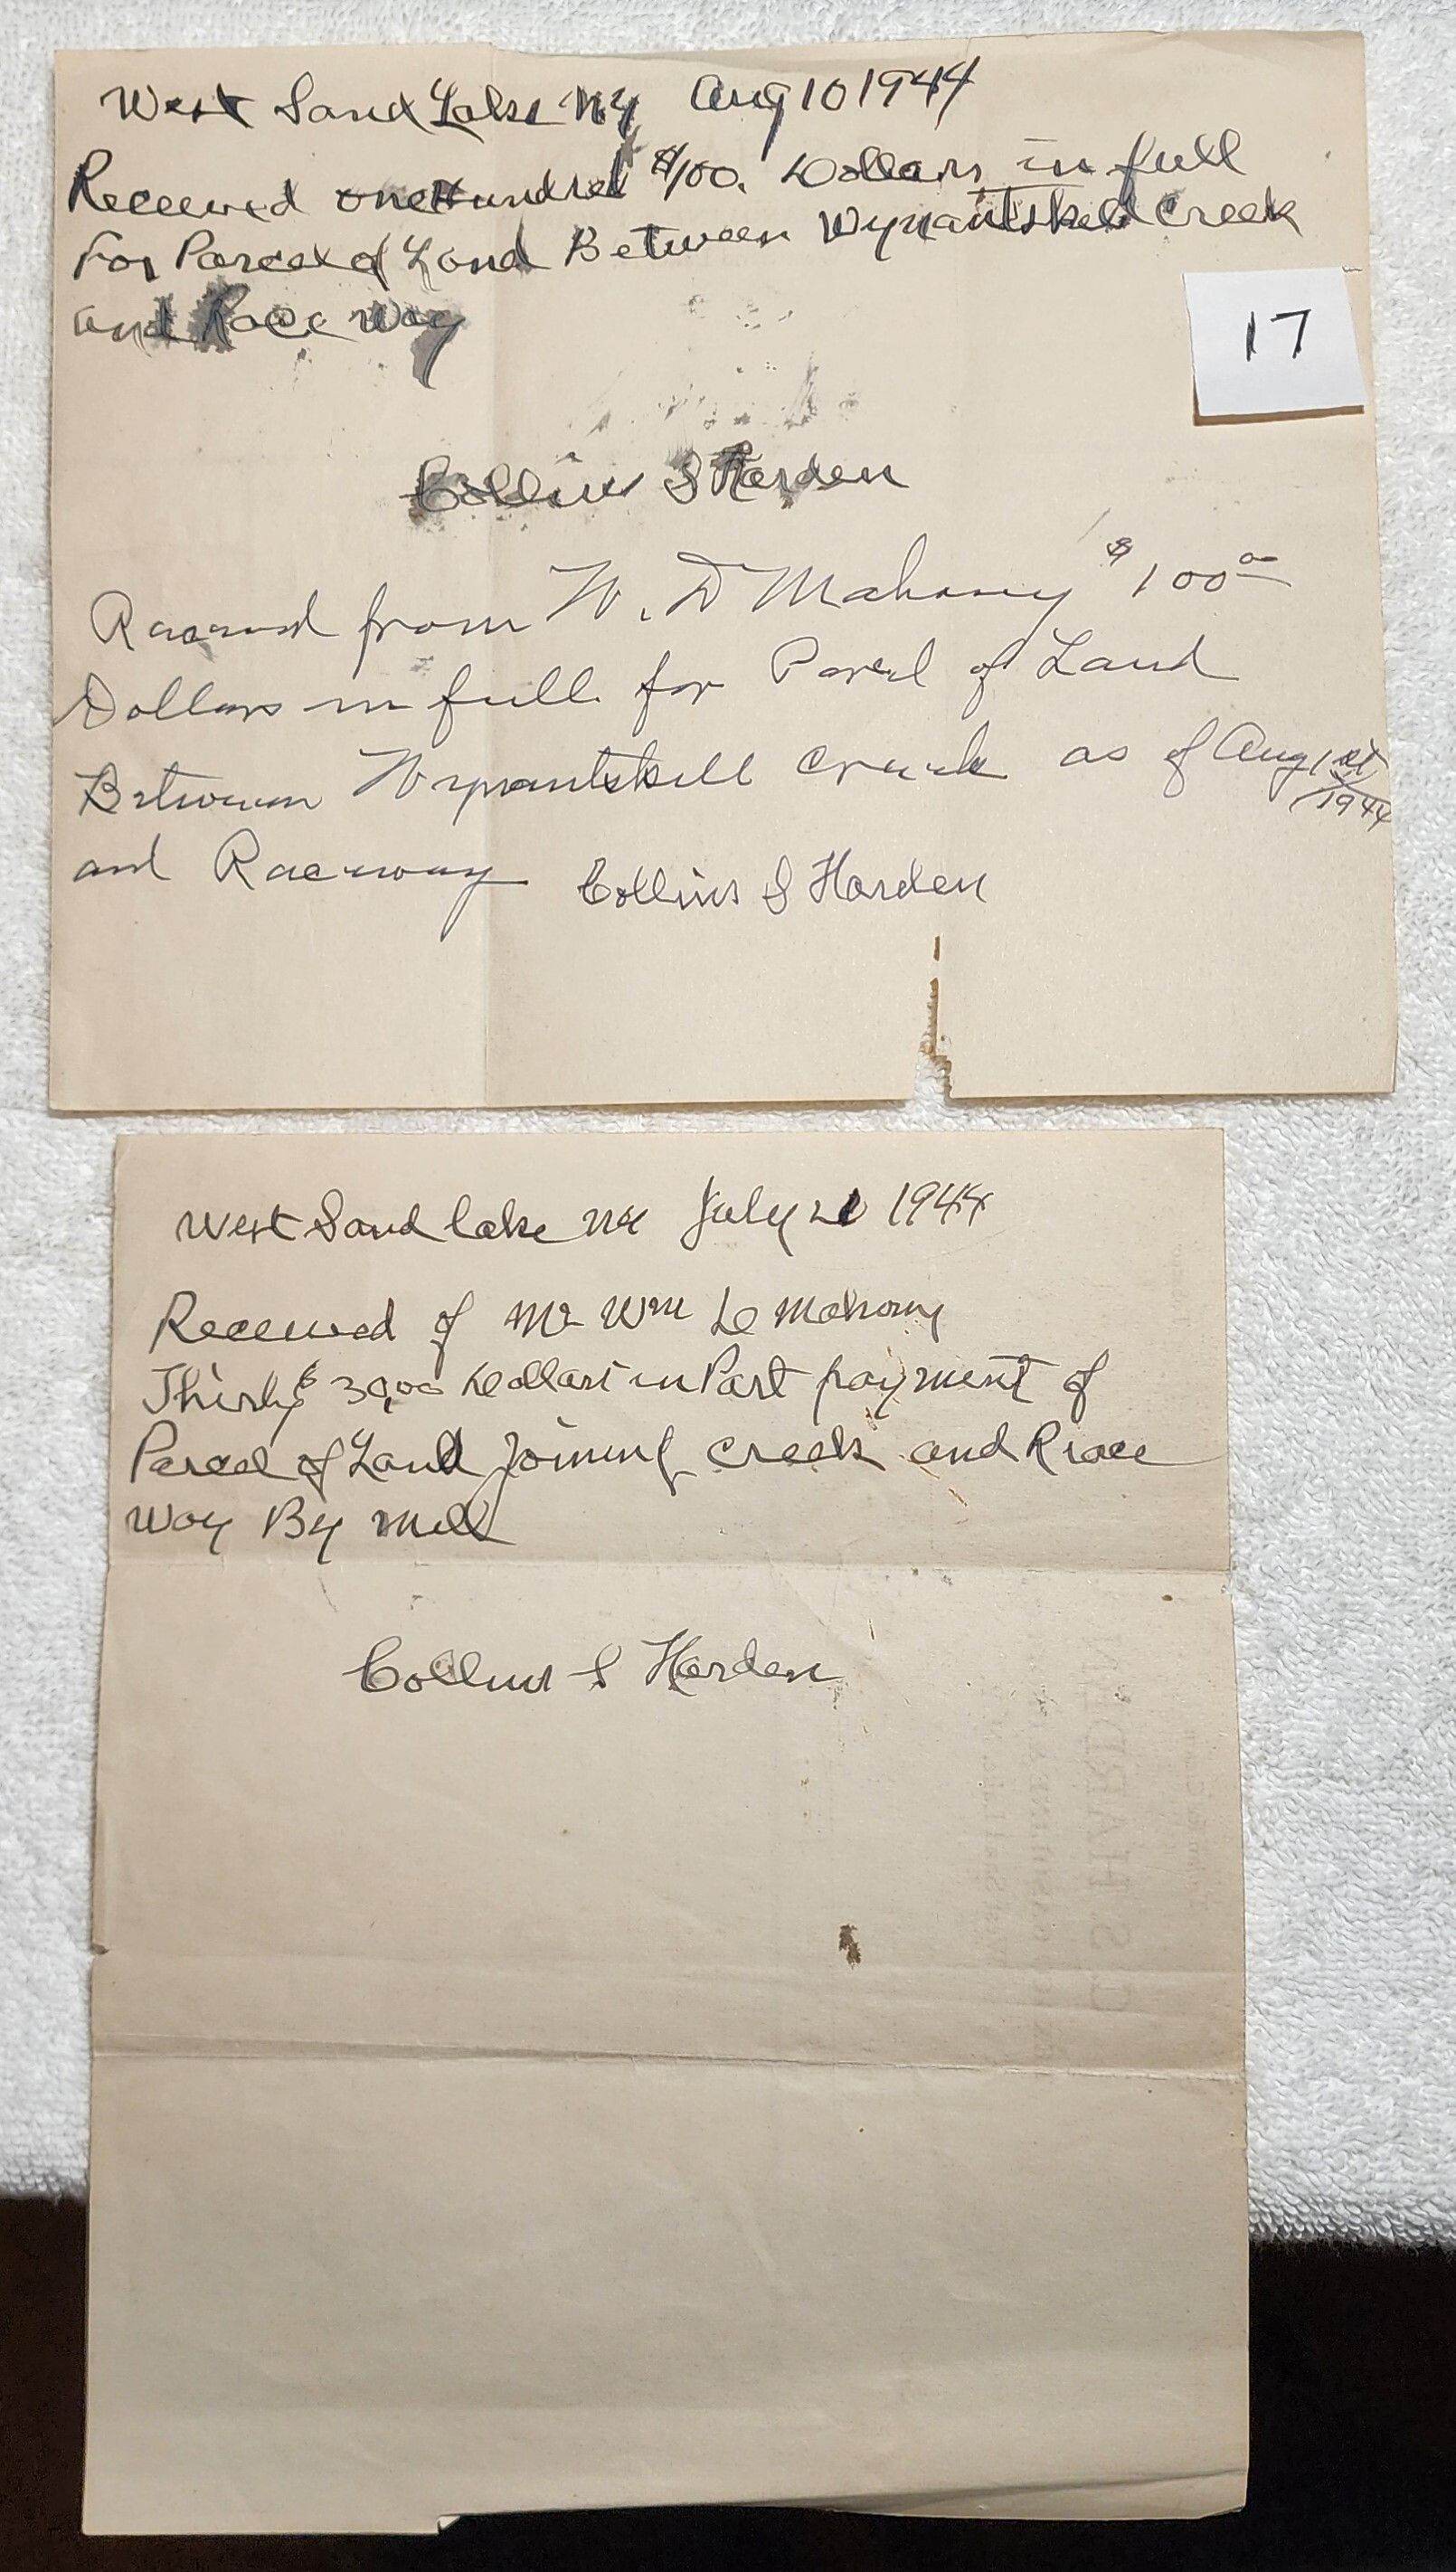 West Sand Lake NY Aug 10 1944
Received one Hundred $/100. Dollars in full
For Parcel of Land Between Wynantskill Creek
and Race Way
17
Collins S Harden
Received from W. D Mahony $100 00
Dollars in full for Parcel of Land
Between Wynantskill Creek as of Aug 1st
1944
and Raceway Collins S Harden
West Sand lake NY July 21 1944
Received of Mr Wm D Mahony
Thirty $ 30,00 Dollars in Part payment of
Parcel of Land Joining Creek and Rrace
Way By Mill
Collins S Harden
C. S. HARD